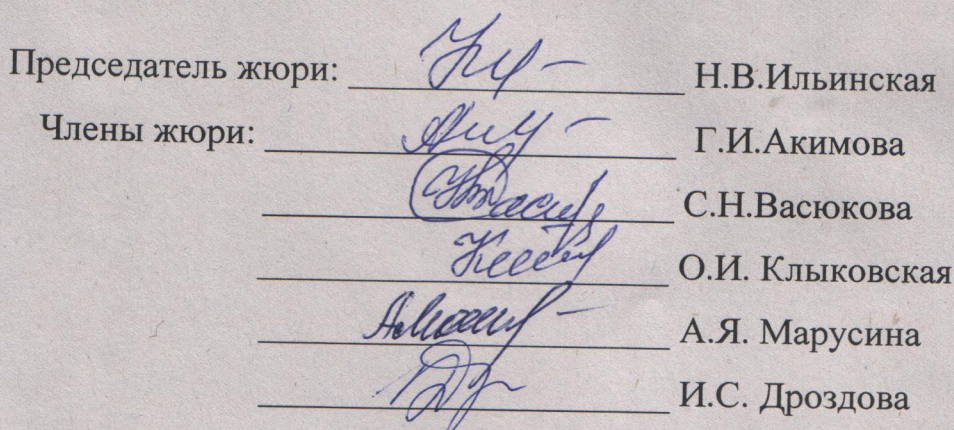 Председатель жюри: Н.В.Ильинская
Члены жюри: Г.И.Акимова
С.Н.Васюкова
О.И. Клыковская
А.Я. Марусина
И.С. Дроздова